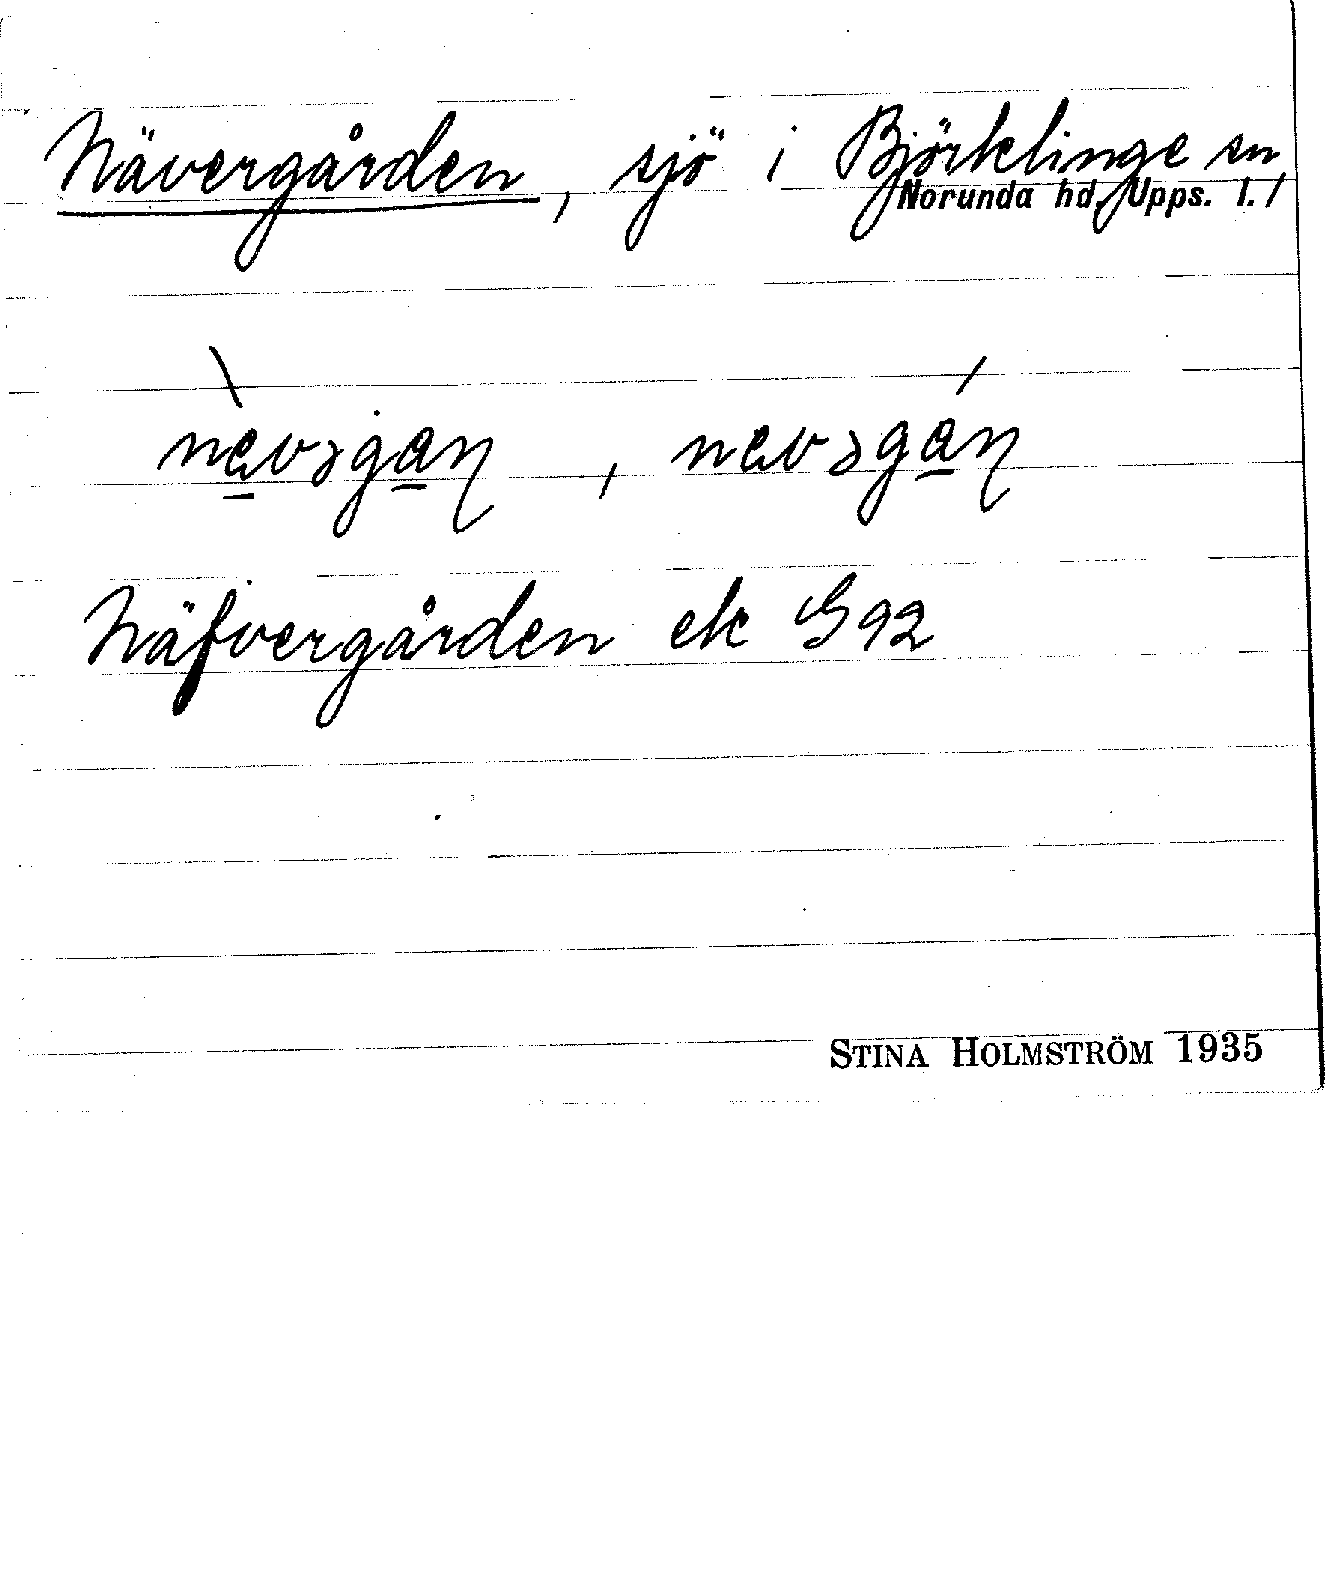 Nävergården, sjö i Björklinge sn,
Norunda hd, Upps. l./
Näfvergården ek G92
STINA HOLMSTRÖM 1935